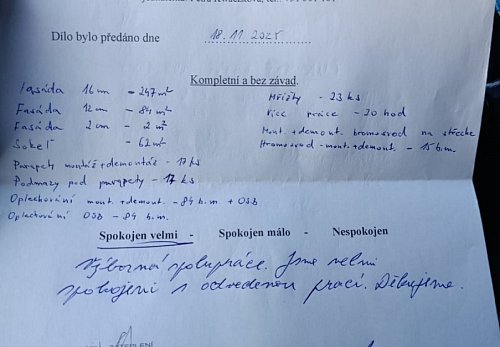 Dílo bylo předáno dne 18.11.2025
Kompletní a bez závad.
Fasáda 16cm - 247m²
Fasáda 12cm - 84m²
Fasáda 2cm - 2m²
Sokel - 62m²
Parapety montáž+demontáž - 17ks
Podmazy pod parapety - 17ks
Oplechování mont.+demont. - 84 b.m. + OSB
Oplechování OSB - 84 b.m.
Mřížky - 23 ks
Více práce - 30 hod
Mont.+demont. hromosvod na střeche
Hromosvod - mont.+demont. - 15 b.m.
Spokojen velmi - Spokojen málo - Nespokojen
Výborná spolupráce. Jsme velmi
spokojeni s odvedenou prací. Děkujeme.